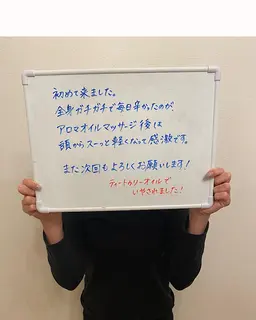 初めて来ました。
全身ガチガチで毎日辛かったのが、
アロマオイルマッサージ後は
頭からスーっと軽くなって感激です。
また次回もよろしくお願いします！
ティートゥリーオイルで
いやされました！